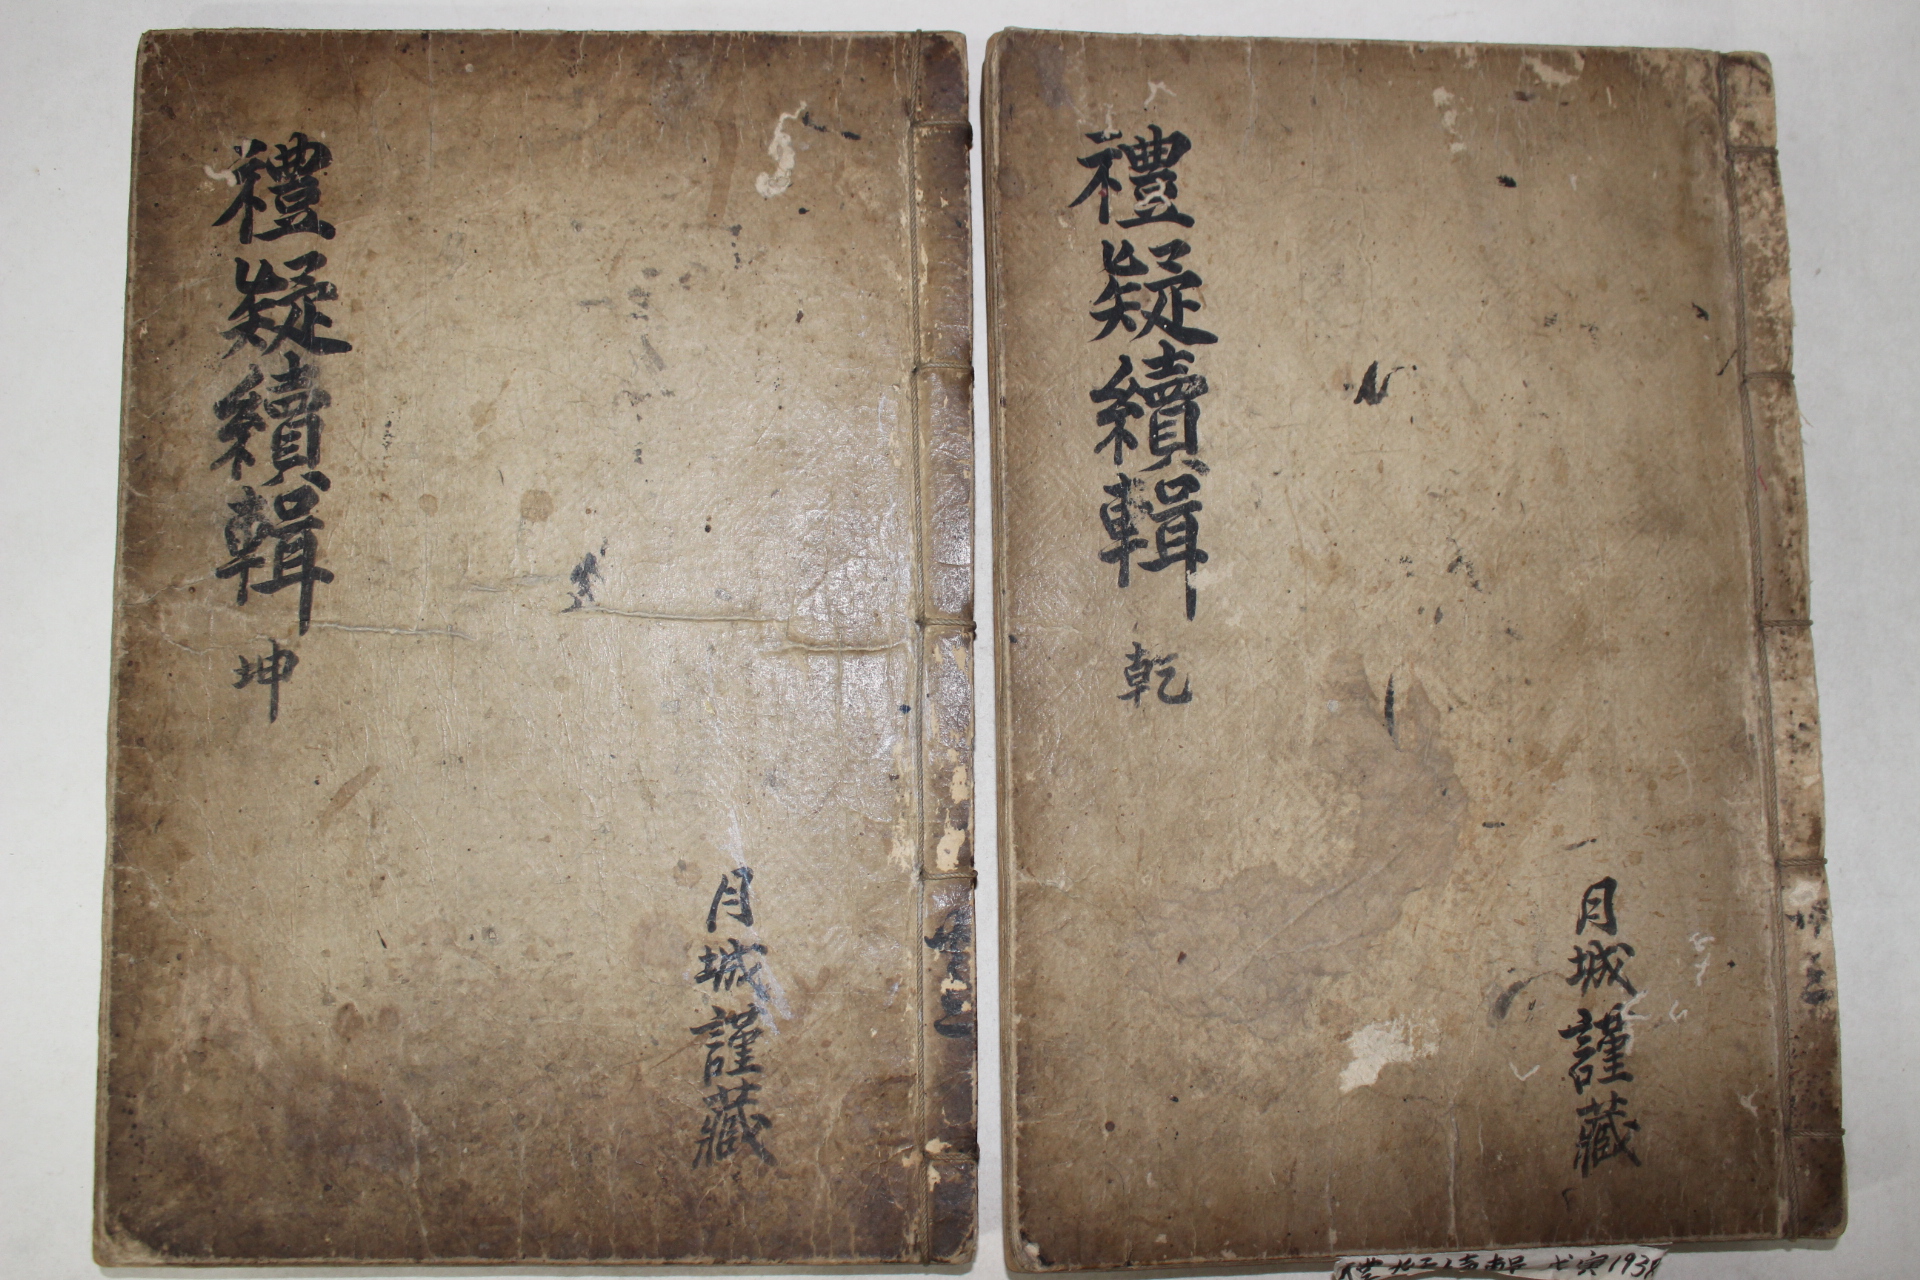 禮疑續輯 乾
月城謹藏
禮疑續輯 坤
月城謹藏
戊寅1938